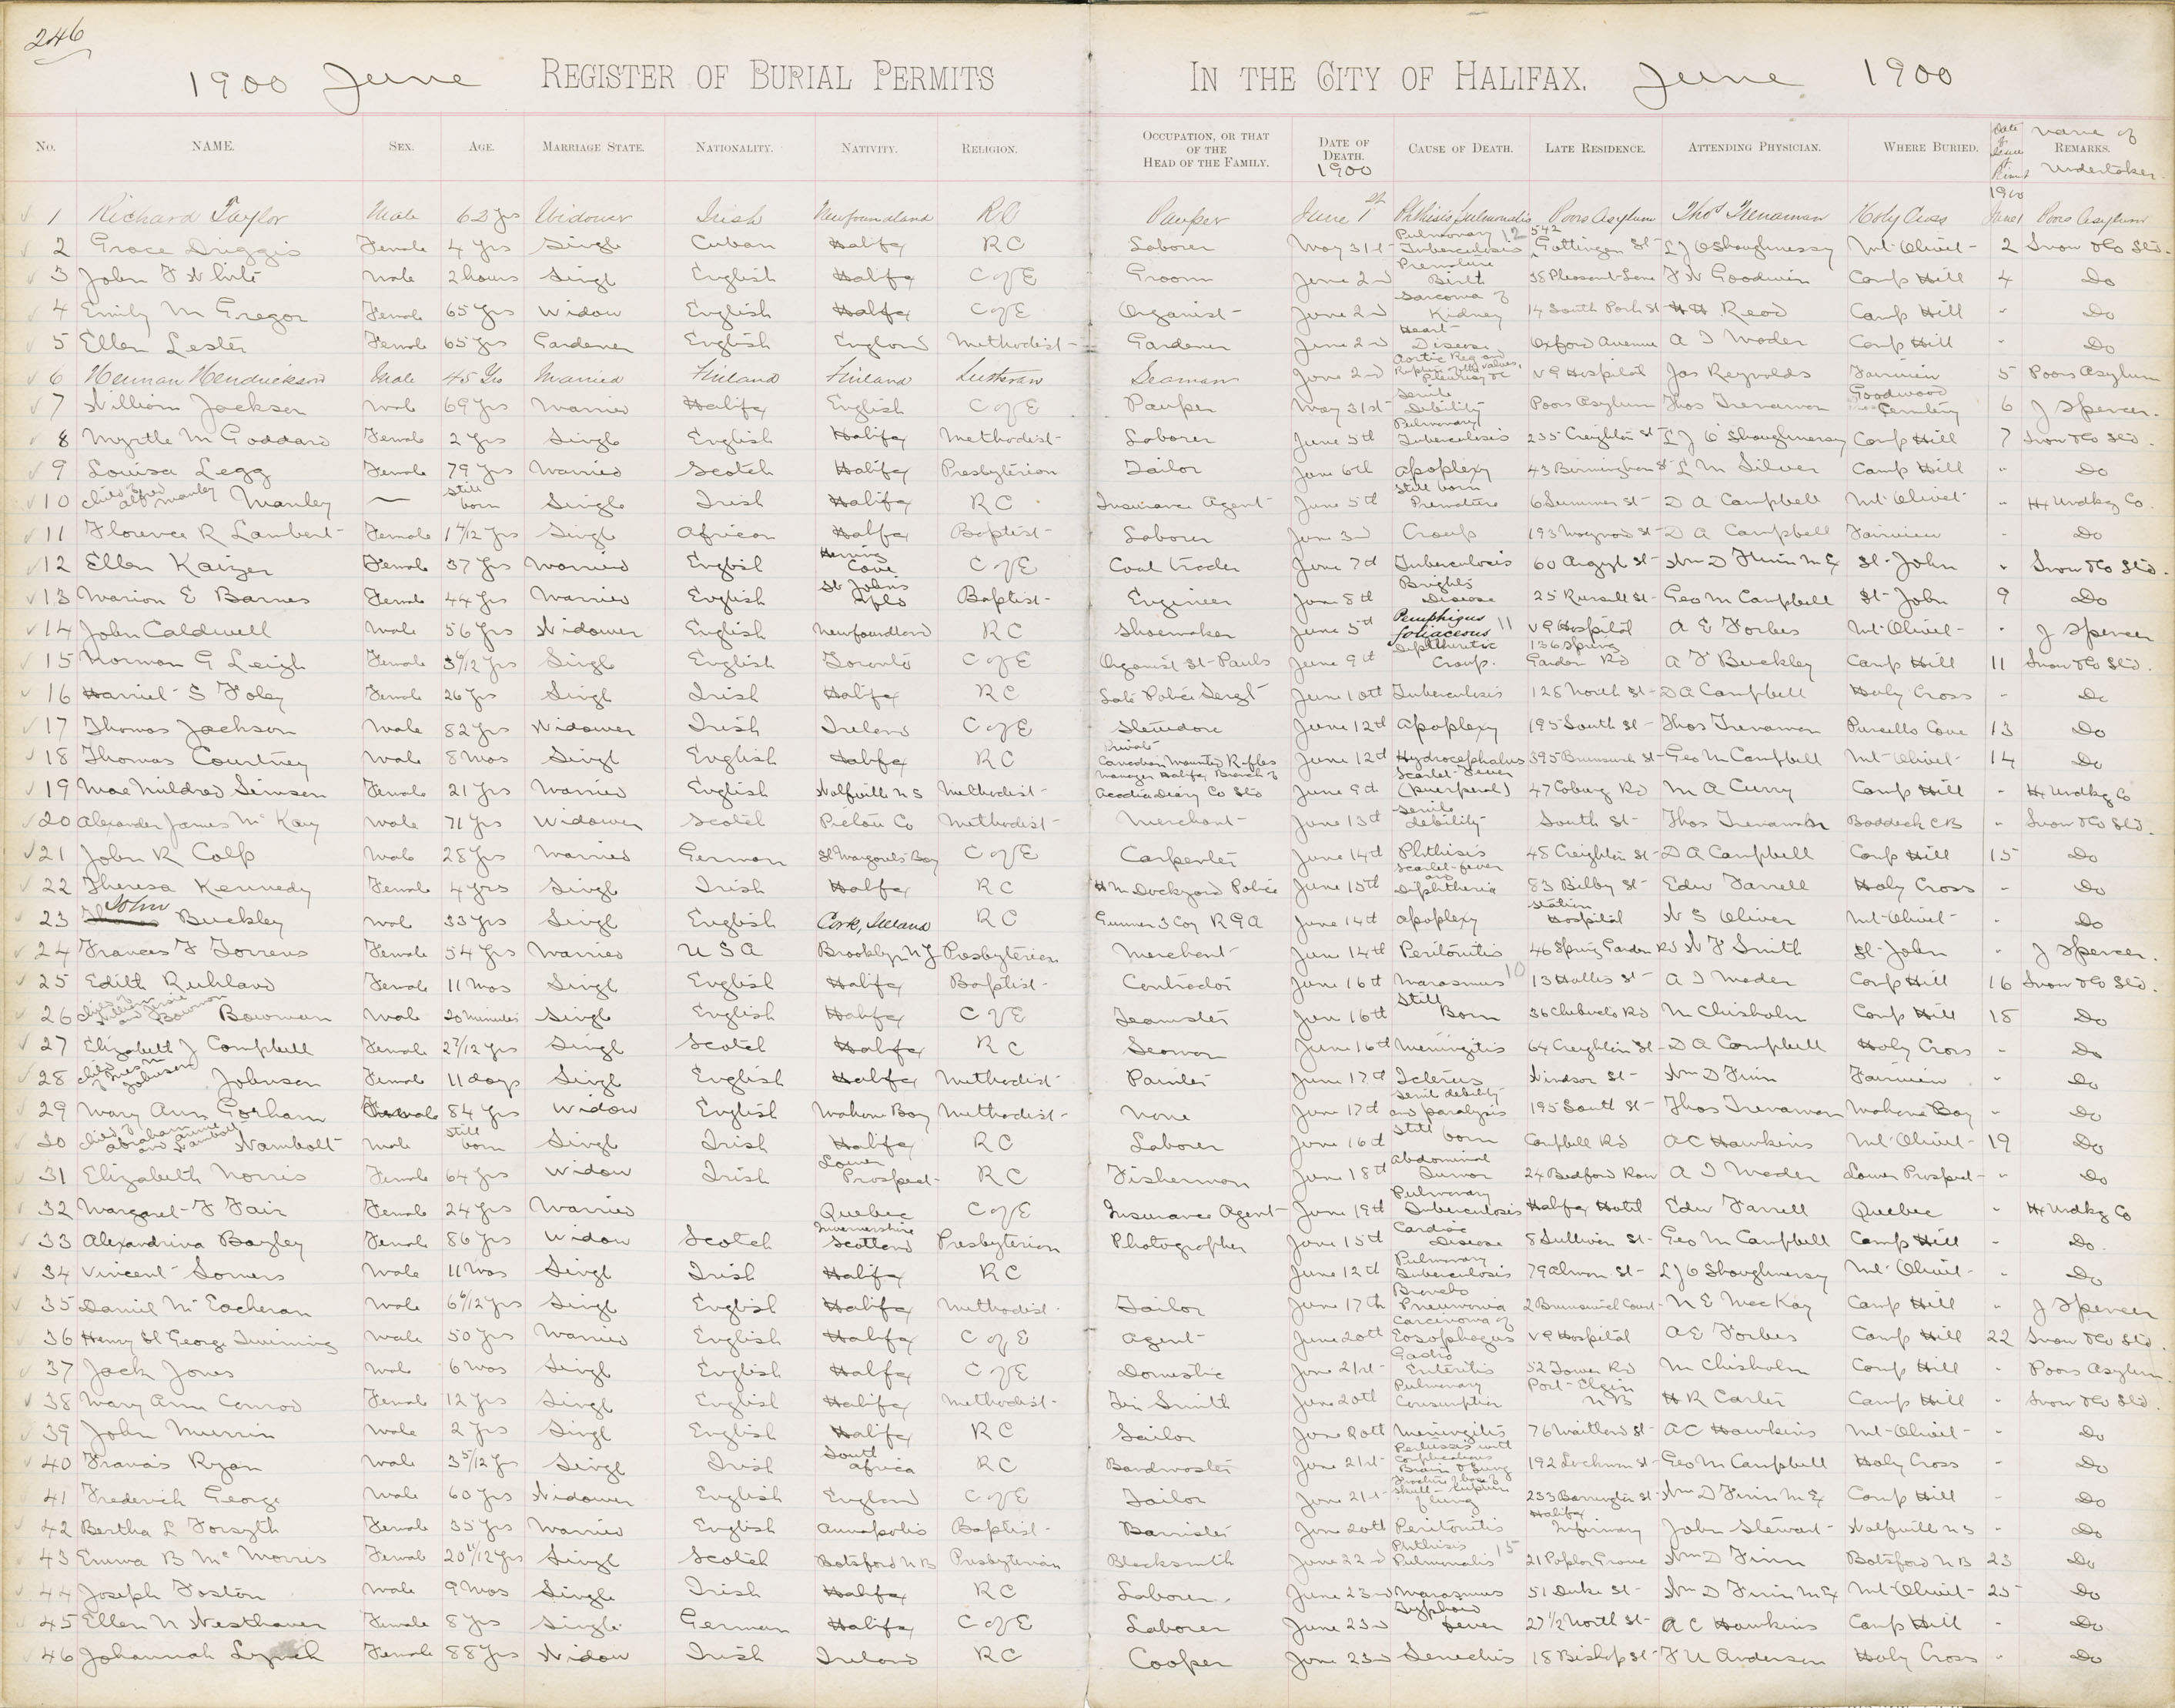 246
1900 June REGISTER OF BURIAL PERMITS IN THE CITY OF HALIFAX. June 1900
No. NAME. SEX. AGE. MARRIAGE STATE. NATIONALITY. NATIVITY. RELIGION. OCCUPATION, OR THAT OF THE HEAD OF THE FAMILY. DATE OF DEATH. 1900 CAUSE OF DEATH. LATE RESIDENCE. ATTENDING PHYSICIAN. WHERE BURIED. Date of Issue of Permit Name of REMARKS. Undertaker.
1 Richard Taylor Male 62 yrs Widower Irish Newfoundland RC Pauper June 1st Phthisis Pulmonalis Poors Asylum Thos Trenaman Holy Cross 1900 June 1 Poors Asylum
2 Grace Driggis Female 4 yrs Single Cuban Halifax RC Laborer May 31st Pulmonary Tuberculosis 12 542 Gottingen St L J O'Shaughnessy Mt Olivet 2 Snow & Co Ltd.
3 John F White Male 2 hours Single English Halifax C of E Groom June 2nd Premature Birth 38 Pleasant Lane F W Goodwin Camp Hill 4 Do
4 Emily M Gregor Female 65 yrs Widow English Halifax C of E Organist June 2nd Sarcoma of Kidney 14 South Park St H H Read Camp Hill " Do
5 Ellen Lester Female 65 yrs Gardener English England Methodist Gardener June 2nd Heart Disease Oxford Avenue A I Mader Camp Hill " Do
6 Herman Hendrickson Male 45 yrs Married Finland Finland Lutheran Seaman June 2nd Aortic Reg and Rupture of the valves, Pleurisy &c V G Hospital Jas Reynolds Fairview 5 Poors Asylum
7 William Jackson Male 69 yrs Married Halifax English C of E Pauper May 31st Senile Debility Poors Asylum Thos Trenaman Goodwood Cemetery 6 J Spencer.
8 Myrtle M Goddard Female 2 yrs Single English Halifax Methodist Laborer June 5th Pulmonary Tuberculosis 235 Creighton St L J O'Shaughnessy Camp Hill 7 Snow & Co Ltd.
9 Louisa Legg Female 79 yrs Married Scotch Halifax Presbyterian Tailor June 6th Apoplexy 43 Birmingham St L M Silver Camp Hill " Do
10 Child of Alfred Manley Manley — Still born Single Irish Halifax RC Insurance Agent June 5th Still born Premature 6 Summer St D A Campbell Mt Olivet " Hx Undkg Co.
11 Florence R Lambert Female 1 4/12 yrs Single African Halifax Baptist Laborer June 3rd Croup 193 Maynard St D A Campbell Fairview " Do
12 Ellen Kaizer Female 37 yrs Married English Herring Cove C of E Coal trader June 7th Tuberculosis 60 Argyle St Wm D Finn M Ex St John " Snow & Co Ltd.
13 Marion E Barnes Female 44 yrs Married English St Johns Nfld Baptist Engineer June 8th Brights Disease 25 Russell St Geo M Campbell St John 9 Do
14 John Caldwell Male 56 yrs Widower English Newfoundland RC Shoemaker June 5th Pemphigus foliaceous 11 V G Hospital A E Forbes Mt Olivet " J Spencer
15 Norman G Leigh Female 3 6/12 yrs Single English Toronto C of E Organist St Pauls June 9th Diphtheritic Croup. 136 Spring Garden Rd A F Buckley Camp Hill 11 Snow & Co Ltd.
16 Harriet S Foley Female 26 yrs Single Irish Halifax RC Late Police Sergt June 10th Tuberculosis 128 North St D A Campbell Holy Cross " Do
17 Thomas Jackson Male 82 yrs Widower Irish Ireland C of E Stevedore June 12th Apoplexy 195 South St Thos Trenaman Purcells Cove 13 Do
18 Thomas Courtney Male 8 mos Single English Halifax RC Private Canadian Mounted Rifles June 12th Hydrocephalus 395 Brunswick St Geo M Campbell Mt Olivet 14 Do
19 Mae Mildred Simson Female 21 yrs Married English Wolfville N S Methodist Manager Halifax Branch of Acadia Dairy Co Ltd June 9th Scarlet fever (puerperal) 47 Coburg Rd M A Curry Camp Hill " Hx Undkg Co
20 Alexander James McKay Male 71 yrs Widower Scotch Pictou Co Methodist Merchant June 13th Senile debility South St Thos Trenaman Baddeck CB " Snow & Co Ltd.
21 John R Colp Male 28 yrs Married German St Margarets Bay C of E Carpenter June 14th Phthisis 48 Creighton St D A Campbell Camp Hill 15 Do
22 Theresa Kennedy Female 4 yrs Single Irish Halifax RC H M Dockyard Police June 15th Scarlet fever and Diphtheria 83 Bilby St Edw Farrell Holy Cross " Do
23 John Buckley Male 33 yrs Single English Cork, Ireland RC Gunner 3 Coy R G A June 14th Apoplexy Station Hospital W S Oliver Mt Olivet " Do
24 Frances F Torrens Female 54 yrs Married U S A Brooklyn N Y Presbyterian Merchant June 14th Peritonitis 46 Spring Garden Rd W F Smith St John " J Spencer.
25 Edith Ruhland Female 11 mos Single English Halifax Baptist Contractor June 16th Marasmus 10 13 Hollis St A I Mader Camp Hill 16 Snow & Co Ltd.
26 Bowman Male 20 minutes Single English Halifax C of E Teamster June 16th Still Born 36 Chebucto Rd M Chisholm Camp Hill 18 Do
27 Elizabeth J Campbell Female 2 7/12 yrs Single Scotch Halifax RC Seaman June 16th Meningitis 64 Creighton St D A Campbell Holy Cross " Do
28 Johnson Female 11 days Single English Halifax Methodist Painter June 17th Icterus Windsor St Wm D Finn Fairview " Do
29 Mary Ann Gorham Female 84 yrs Widow English Mahone Bay Methodist None June 17th Senile debility and paralysis 195 South St Thos Trenaman Mahone Bay " Do
30 Child of Abraham and Annie Wambolt Wambolt Male Still born Single Irish Halifax RC Laborer June 16th Still born Campbell Rd A C Hawkins Mt Olivet 19 Do
31 Elizabeth Norris Female 64 yrs Widow Irish Lower Prospect RC Fisherman June 18th Abdominal Tumor 24 Bedford Row A I Mader Lower Prospect " Do
32 Margaret F Fair Female 24 yrs Married Quebec C of E Insurance Agent June 19th Pulmonary Tuberculosis Halifax Hotel Edw Farrell Quebec " Hx Undkg Co
33 Alexandrina Bayley Female 86 yrs Widow Scotch Invernesshire Scotland Presbyterian Photographer June 15th Cardiac Disease 8 Sullivan St Geo M Campbell Camp Hill " Do.
34 Vincent Somers Male 11 mos Single Irish Halifax RC June 12th Pulmonary Tuberculosis 79 Almon St L J O'Shaughnessy Mt Olivet " Do
35 Daniel McEacheran Male 6 6/12 yrs Single English Halifax Methodist Tailor June 17th Broncho Pneumonia 2 Brunswick Court N E MacKay Camp Hill " J Spencer
36 Henry St George Twining Male 50 yrs Married English Halifax C of E Agent June 20th Carcinoma of Eosophagus V G Hospital A E Forbes Camp Hill 22 Snow & Co Ltd.
37 Jack Jones Male 6 mos Single English Halifax C of E Domestic June 21st Gastro Enteritis 52 Tower Rd M Chisholm Camp Hill " Poors Asylum.
38 Mary Ann Conrod Female 12 yrs Single English Halifax Methodist Tin Smith June 20th Pulmonary Consumption Port Elgin N B H R Carter Camp Hill " Snow & Co Ltd.
39 John Murrin Male 2 yrs Single English Halifax RC Sailor June 20th Meningitis 76 Maitland St A C Hawkins Mt Olivet " Do
40 Francis Ryan Male 3 5/12 yrs Single Irish South Africa RC Bandmaster June 21st Pertussis with complications Brain & Lung 192 Lockman St Geo M Campbell Holy Cross " Do
41 Frederick George Male 60 yrs Widower English England C of E Tailor June 21st Fracture of base of skull rupture of lung 233 Barrington St Wm D Finn M Ex Camp Hill " Do
42 Bertha L Forsyth Female 35 yrs Married English Annapolis Baptist Barrister June 20th Peritonitis Halifax Infirmary John Stewart Wolfville N S " Do
43 Emma B McMorris Female 20 11/12 yrs Single Scotch Botsford N B Presbyterian Blacksmith June 22nd Phthisis Pulmonalis 15 21 Poplar Grove Wm D Finn Botsford N B 23 Do
44 Joseph Foston Male 9 mos Single Irish Halifax RC Laborer. June 23rd Marasmus 51 Duke St Wm D Finn M Ex Mt Olivet 25 Do
45 Ellen N Westhaver Female 8 yrs Single German Halifax C of E Laborer June 23rd Typhoid fever 27 1/2 North St A C Hawkins Camp Hill " Do
46 Johannah Lynch Female 88 yrs Widow Irish Ireland RC Cooper June 23rd 18 Bishop St F U Anderson Holy Cross " Do